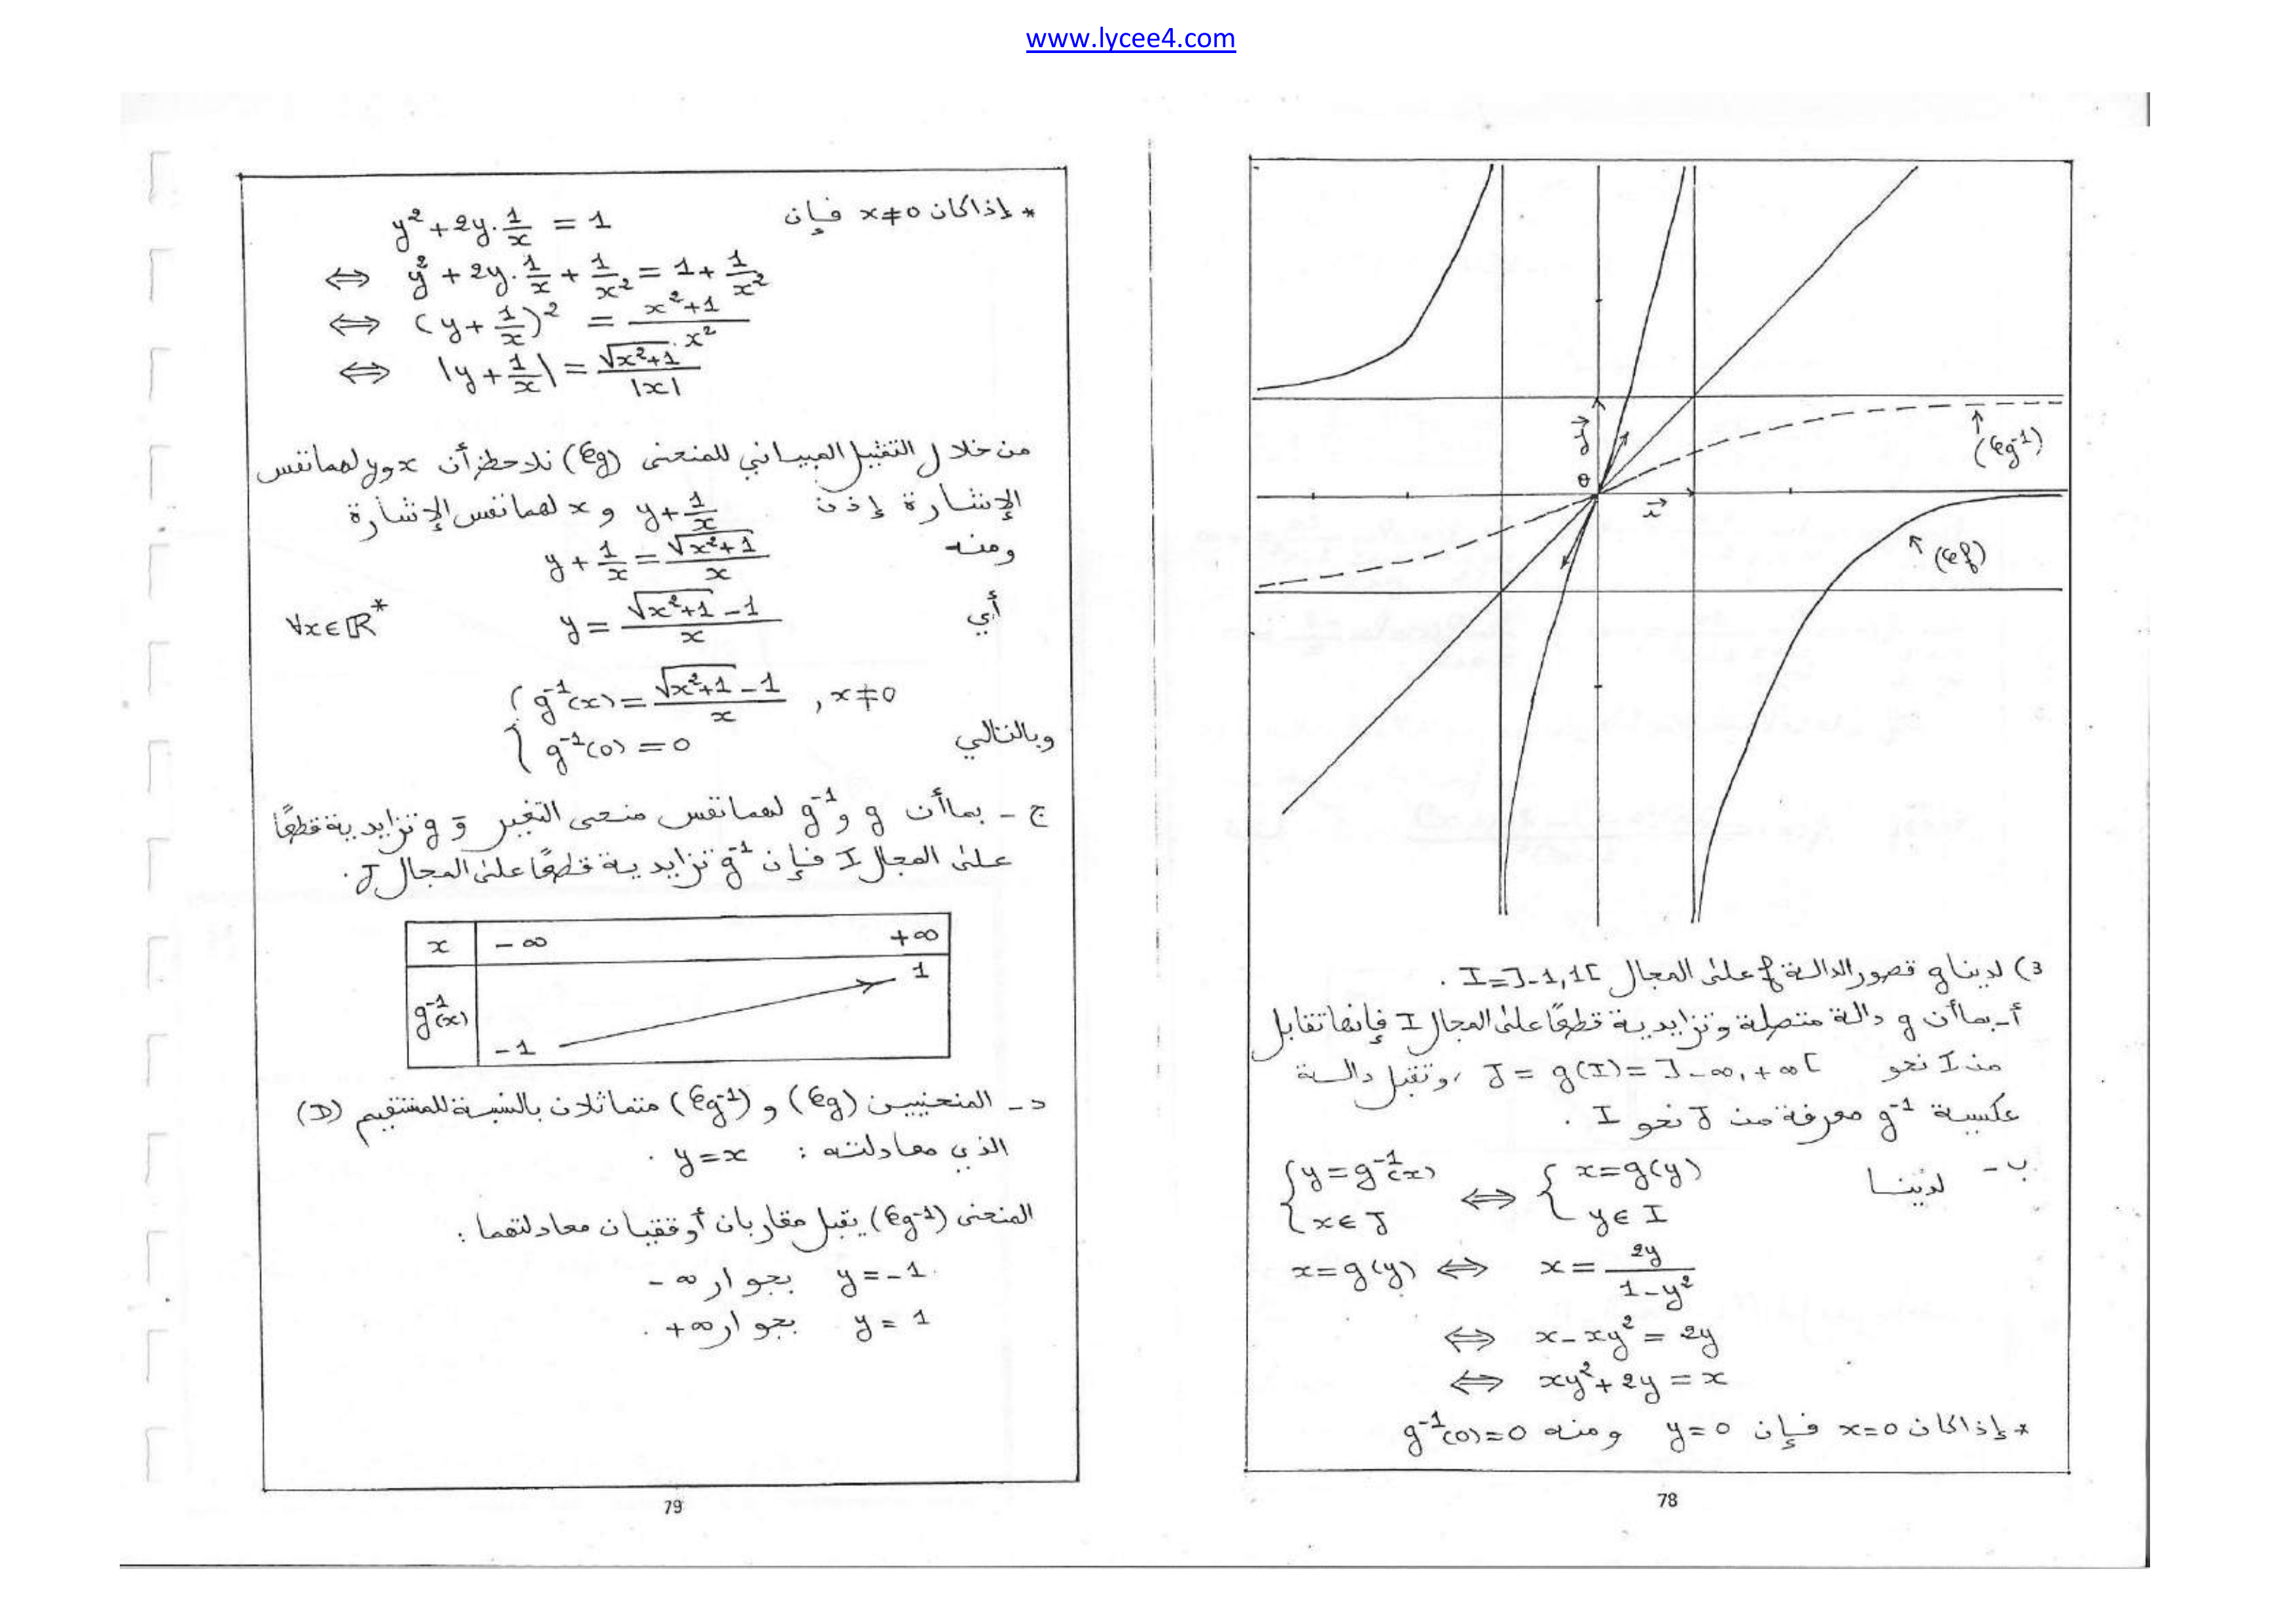 www.lycee4.com
j
θ
i
(𝒞g⁻¹)
(𝒞f)
3) لدينا g قصور الدالة f على المجال I=]-1,1[ .
أ- بما أن g دالة متصلة وتزايدية قطعًا على المجال I فإنها تقابل
من I نحو J = g(I) = ]-∞,+∞[ ، وتقبل دالة
عكسية g⁻¹ معرفة من J نحو I .
ب- لدينا { y=g⁻¹(x) , x∈J ⟺ { x=g(y) , y∈I
x=g(y) ⟺ x = 2y/(1-y²)
⟺ x-xy² = 2y
⟺ xy²+2y = x
* إذا كان x=0 فإن y=0 ومنه g⁻¹(0)=0
78
* إذا كان x≠0 فإن y²+2y.1/x = 1
⟺ y²+2y.1/x+1/x² = 1+1/x²
⟺ (y+1/x)² = (x²+1)/x²
⟺ |y+1/x| = √(x²+1)/|x|
من خلال التمثيل المبياني للمنحنى (𝒞g) نلاحظ أن x و y لهما نفس
الإشارة إذن y+1/x و x لهما نفس الإشارة
ومنه y+1/x = √(x²+1)/x
أي y = (√(x²+1)-1)/x ∀x∈ℝ*
وبالتالي { g⁻¹(x) = (√(x²+1)-1)/x , x≠0
g⁻¹(0) = 0
ج- بما أن g و g⁻¹ لهما نفس منحى التغير و g تزايدية قطعًا
على المجال I فإن g⁻¹ تزايدية قطعًا على المجال J .
x -∞ +∞
g⁻¹(x) -1 1
د- المنحنيين (𝒞g) و (𝒞g⁻¹) متماثلان بالنسبة للمستقيم (D)
الذي معادلته : y=x .
المنحنى (𝒞g⁻¹) يقبل مقاربان أفقيان معادلتهما :
y=-1 بجوار -∞
y=1 بجوار +∞ .
79